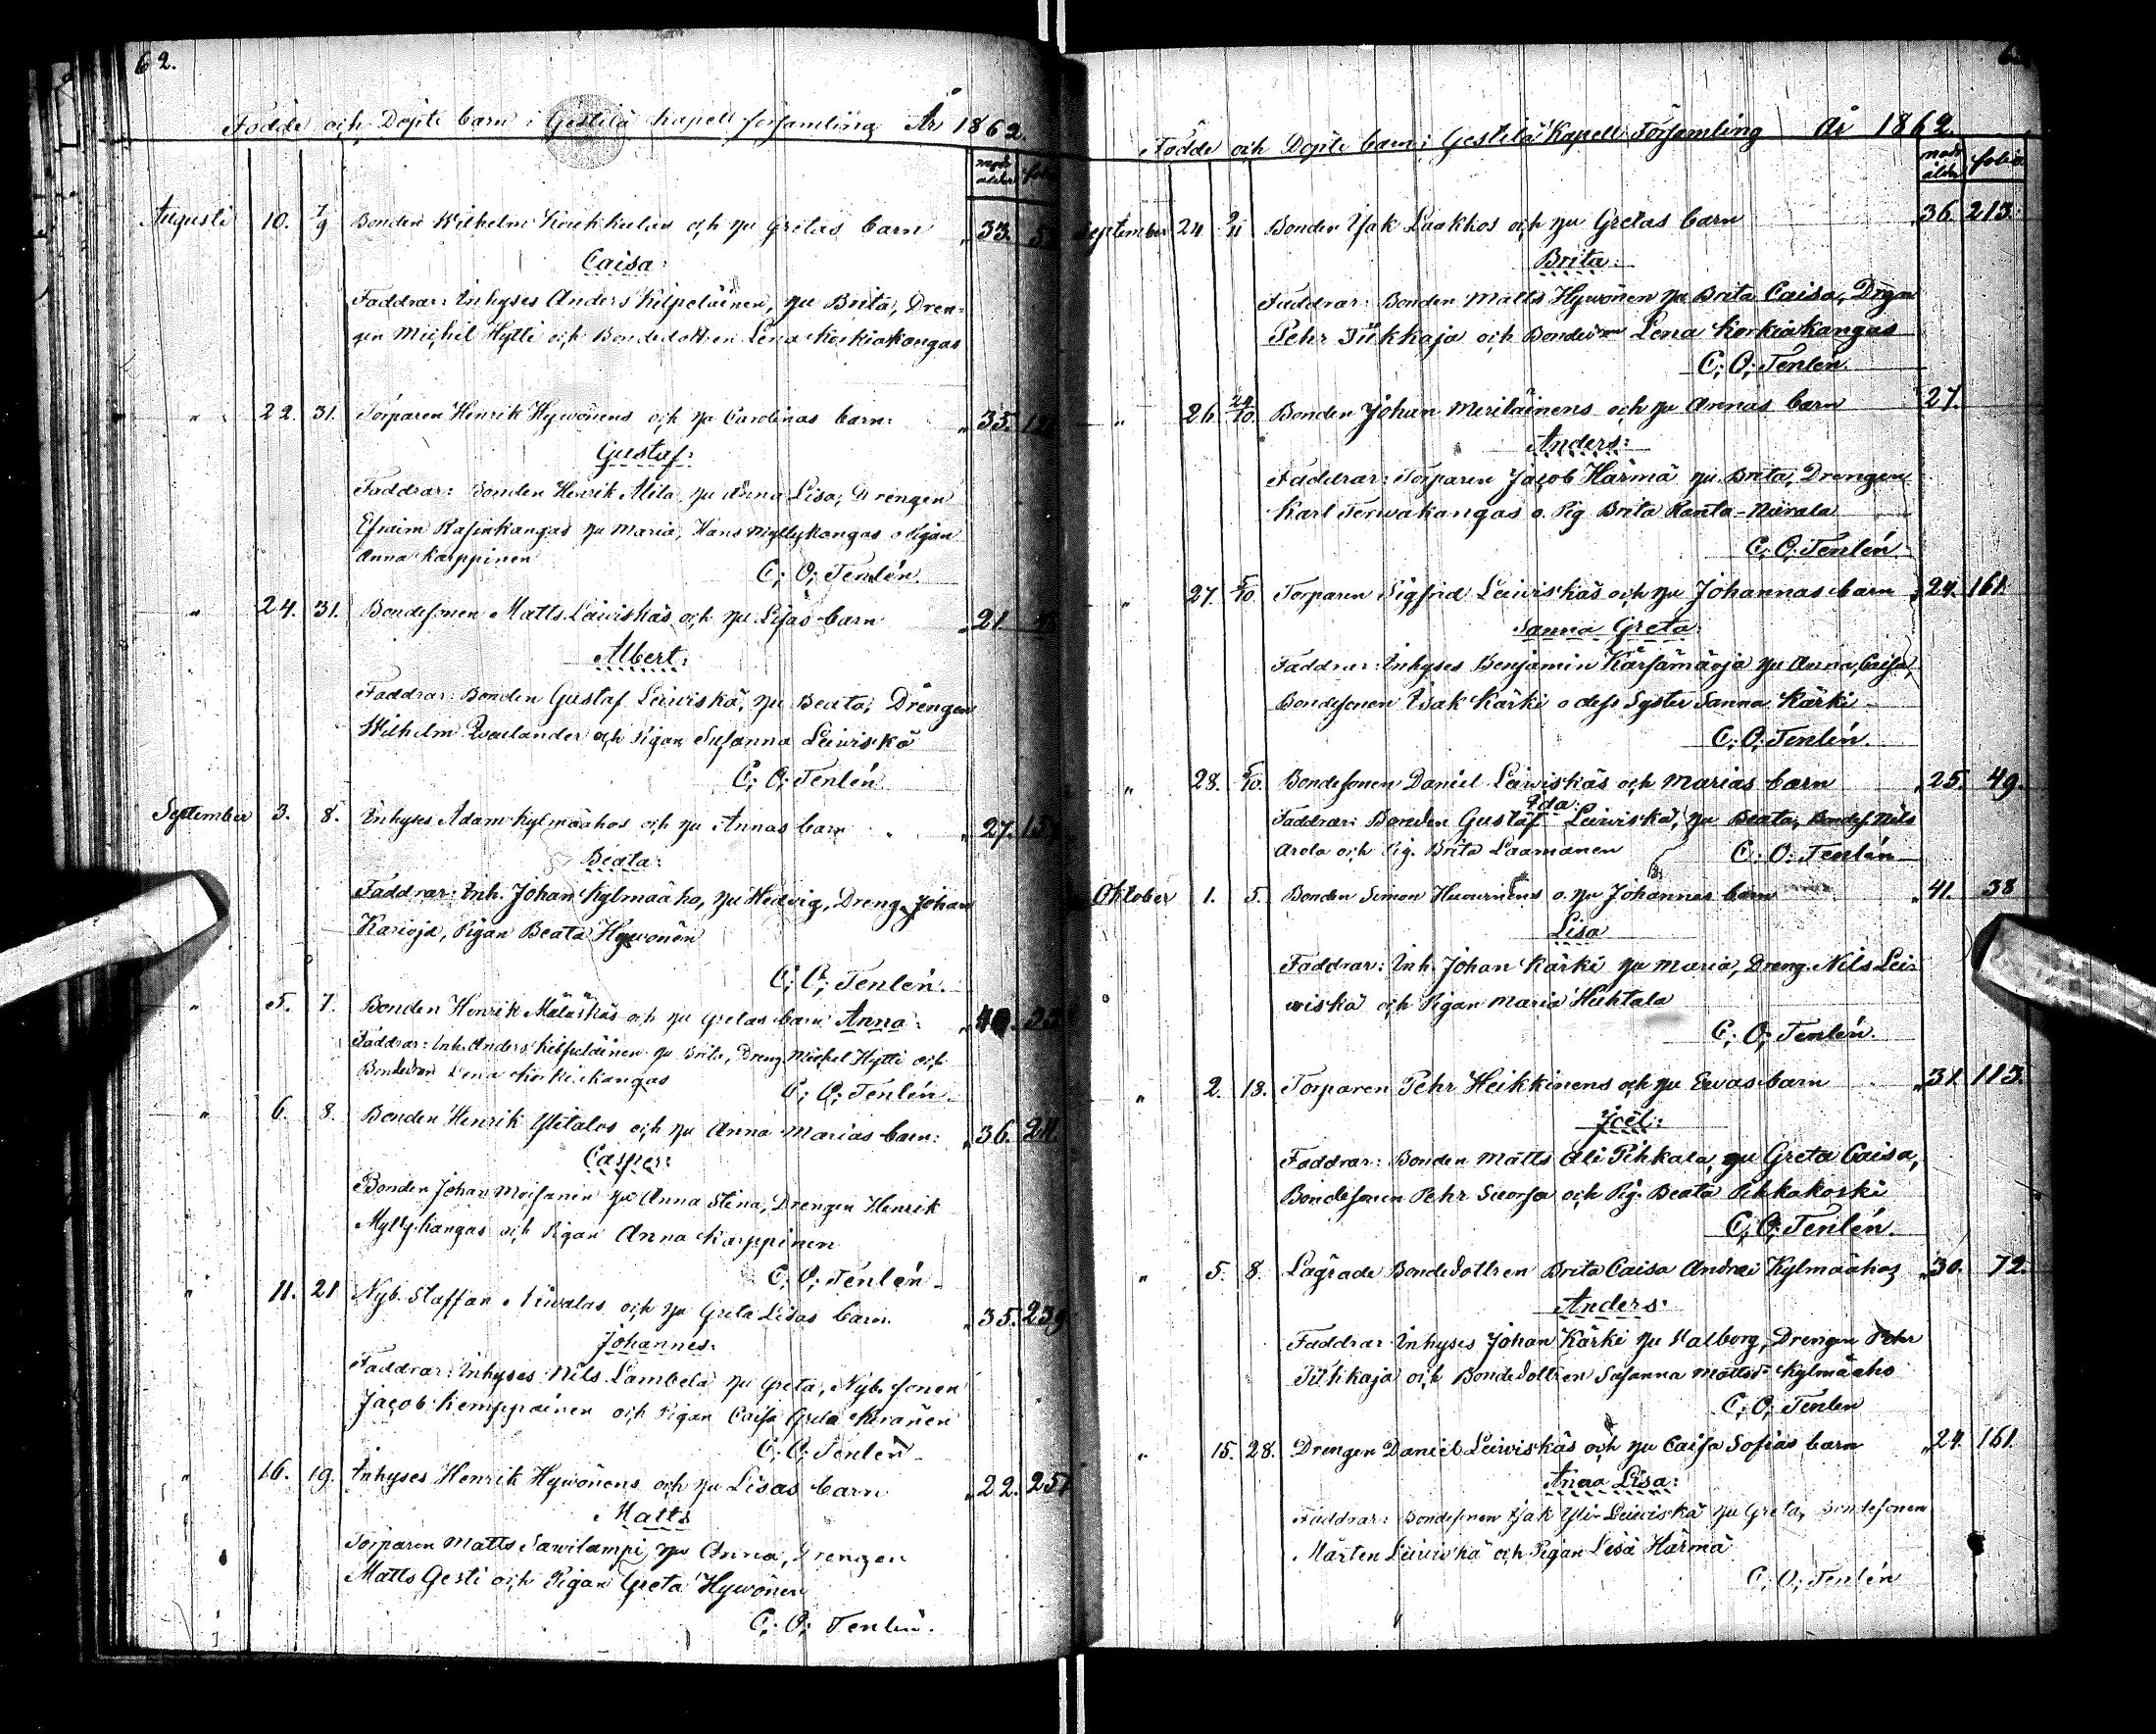 62.
Födde och Döpte barn i Gestilä Kapell församling År 1862.
moders ålder
Augusti 10. 7/9 Bonden Wilhelm och hu Gretas barn 33.
Caisa:
Faddrar: Inhyses Anders Kilpeläinen, hu Brita, Dren-
gen Michel Hytti och Bondedottren Lena Korkiakangas
" 22. 31. Torparen Henrik Hywönens och hu Carolinas barn: 35.
Gustaf:
Faddrar: Bonden Henrik Mila, hu Anna Lisa, Drengen
Efraim hu Maria, Hans Myllykangas o Pigan
Anna Karppinen
C: O: Tenlén
" 24. 31. Bondesonen Matts Leiwiskäs och hu Lisas barn 21.
Albert:
Faddrar: Bonden Gustaf Leiwiskä, hu Beata, Drengen
Wilhelm och Pigan Susanna Leiwiskä
C: O: Tenlén
September 3. 8. Inhyses Adam Kylmäahos och hu Annas barn 27.
Beata:
Faddrar: Inh. Johan Kylmäaho, hu Hedvig, Dreng. Johan
Karioja, Pigan Beata Hywönen
C: O: Tenlén.
" 5. 7. Bonden Henrik Mäläskäs och hu Gretas barn Anna: 40.
Faddrar: Inh. Anders Kilpeläinen hu Brita, Dreng Michel Hytti och
Lena Korkiakangas
C: O: Tenlén
" 6. 8. Bonden Henrik Ylitalos och hu Anna Marias barn: 36. 24.
Casper:
Bonden Johan Moisanen hu Anna Stina, Drengen Henrik
Myllykangas och Pigan Anna Karppinen
C: O: Tenlén
" 11. 21 Nyb. Staffan Niwalas och hu Greta Lisas barn. 35. 239
Johannes:
Faddrar: Inhyses Nils Lambela hu Greta, Nyb. sonen
Jacob Kemppainen och Pigan Caisa Greta
C: O: Tenlén
" 16. 19. Inhyses Henrik Hywönens och hu Lisas barn 22. 251
Matts
Torparen Matts Sawilampi, hu Anna, Drengen
Matts Gesti och Pigan Greta Hywönen
C: O: Tenlén.
Födde och Döpte barn i Gestilä Kapell Församling år 1862.
mod. ålder folio
September 24 9/11 Bonden Isak Laakkos och hu Gretas barn 36. 213.
Brita:
Faddrar: Bonden Matts Hywönen hu Brita Caisa, Drgn
Pehr Tiikkaja och Lena Korkiakangas
C: O: Tenlén.
" 26. 24/10. Bonden Johan Meriläinens och hu Annas barn 27.
Anders:
Faddrar: Torparen Jacob Härmä hu Brita, Drengen
Karl Terwakangas o. Pig Brita Ranta-Niirala
C: O: Tenlén
" 27. 5/10. Torparen Sigfrid Leiwiskäs och hu Johannas barn 24. 161.
Sanna Greta:
Faddrar: Inhyses Benjamin Kärsämäoja hu Anna Caisa,
Bondesonen Isak Kärki o dess Syster Sanna Kärki
C: O: Tenlén.
" 28. 5/10. Bondesonen Daniel Leiwiskäs och Marias barn 25. 49.
Ida:
Faddrar: Bonden Gustaf Leiwiskä, hu Beata, Bondes. Nils
Arola och Pig. Brita Laamanen C: O: Tenlén
Oktober 1. 5. Bonden Simon o. hu Johannas barn 41. 38
Lisa
Faddrar: Inh. Johan Kärki hu Maria, Dreng. Nils Lei-
wiskä och Pigan Maria Huhtala
C: O: Tenlén.
" 2. 13. Torparen Pehr Heikkinens och hu Ewas barn 31. 113.
Joël:
Faddrar: Bonden Matts Ali Pihkala, hu Greta Caisa,
Bondesonen Pehr Suorsa och Pig. Beata Pihkakoski
C: O: Tenlén.
" 5. 8. Lägrade Bondedottren Brita Caisa Andrae Kylmäahos 30. 72.
Anders:
Faddrar Inhyses Johan Kärki hu Walborg, Drengen Pehr
Tiikkaja och Bondedottren Susanna Mattsdr Kylmäaho
C: O: Tenlén
" 15. 28. Drengen Daniel Leiwiskäs och hu Caisa Sofias barn 24. 161.
Anna Lisa:
Faddrar: Bondesonen Isak Yli-Leiwiskä hu Greta, Bondesonen
Mårten Leiwiskä och Pigan Lisa Härmä
C: O: Tenlén